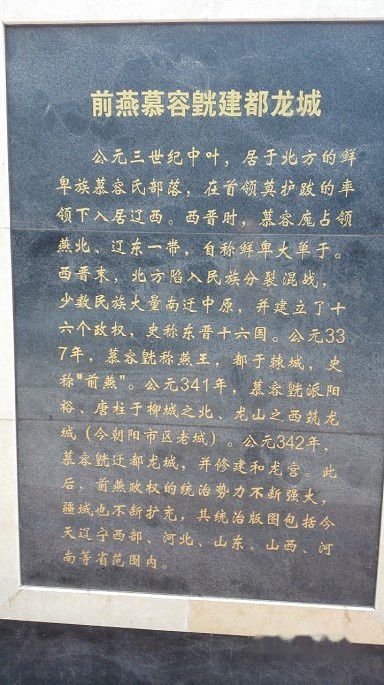 前燕慕容皝建都龙城
公元三世纪中叶，居于北方的鲜
卑族慕容氏部落，在首领莫护跋的率
领下入居辽西。西晋时，慕容廆占领
燕北、辽东一带，自称鲜卑大单于。
西晋末，北方陷入民族分裂混战，
少数民族大量南迁中原，并建立了十
六个政权，史称东晋十六国。公元33
7年，慕容皝称燕王，都于棘城，史
称"前燕"。公元341年，慕容皝派阳
裕、唐柱于柳城之北、龙山之西筑龙
城（今朝阳市区老城）。公元342年，
慕容皝迁都龙城，并修建和龙宫。此
后，前燕政权的统治势力不断强大，
疆域也不断扩充，其统治版图包括今
天辽宁西部、河北、山东、山西、河
南等省范围内。